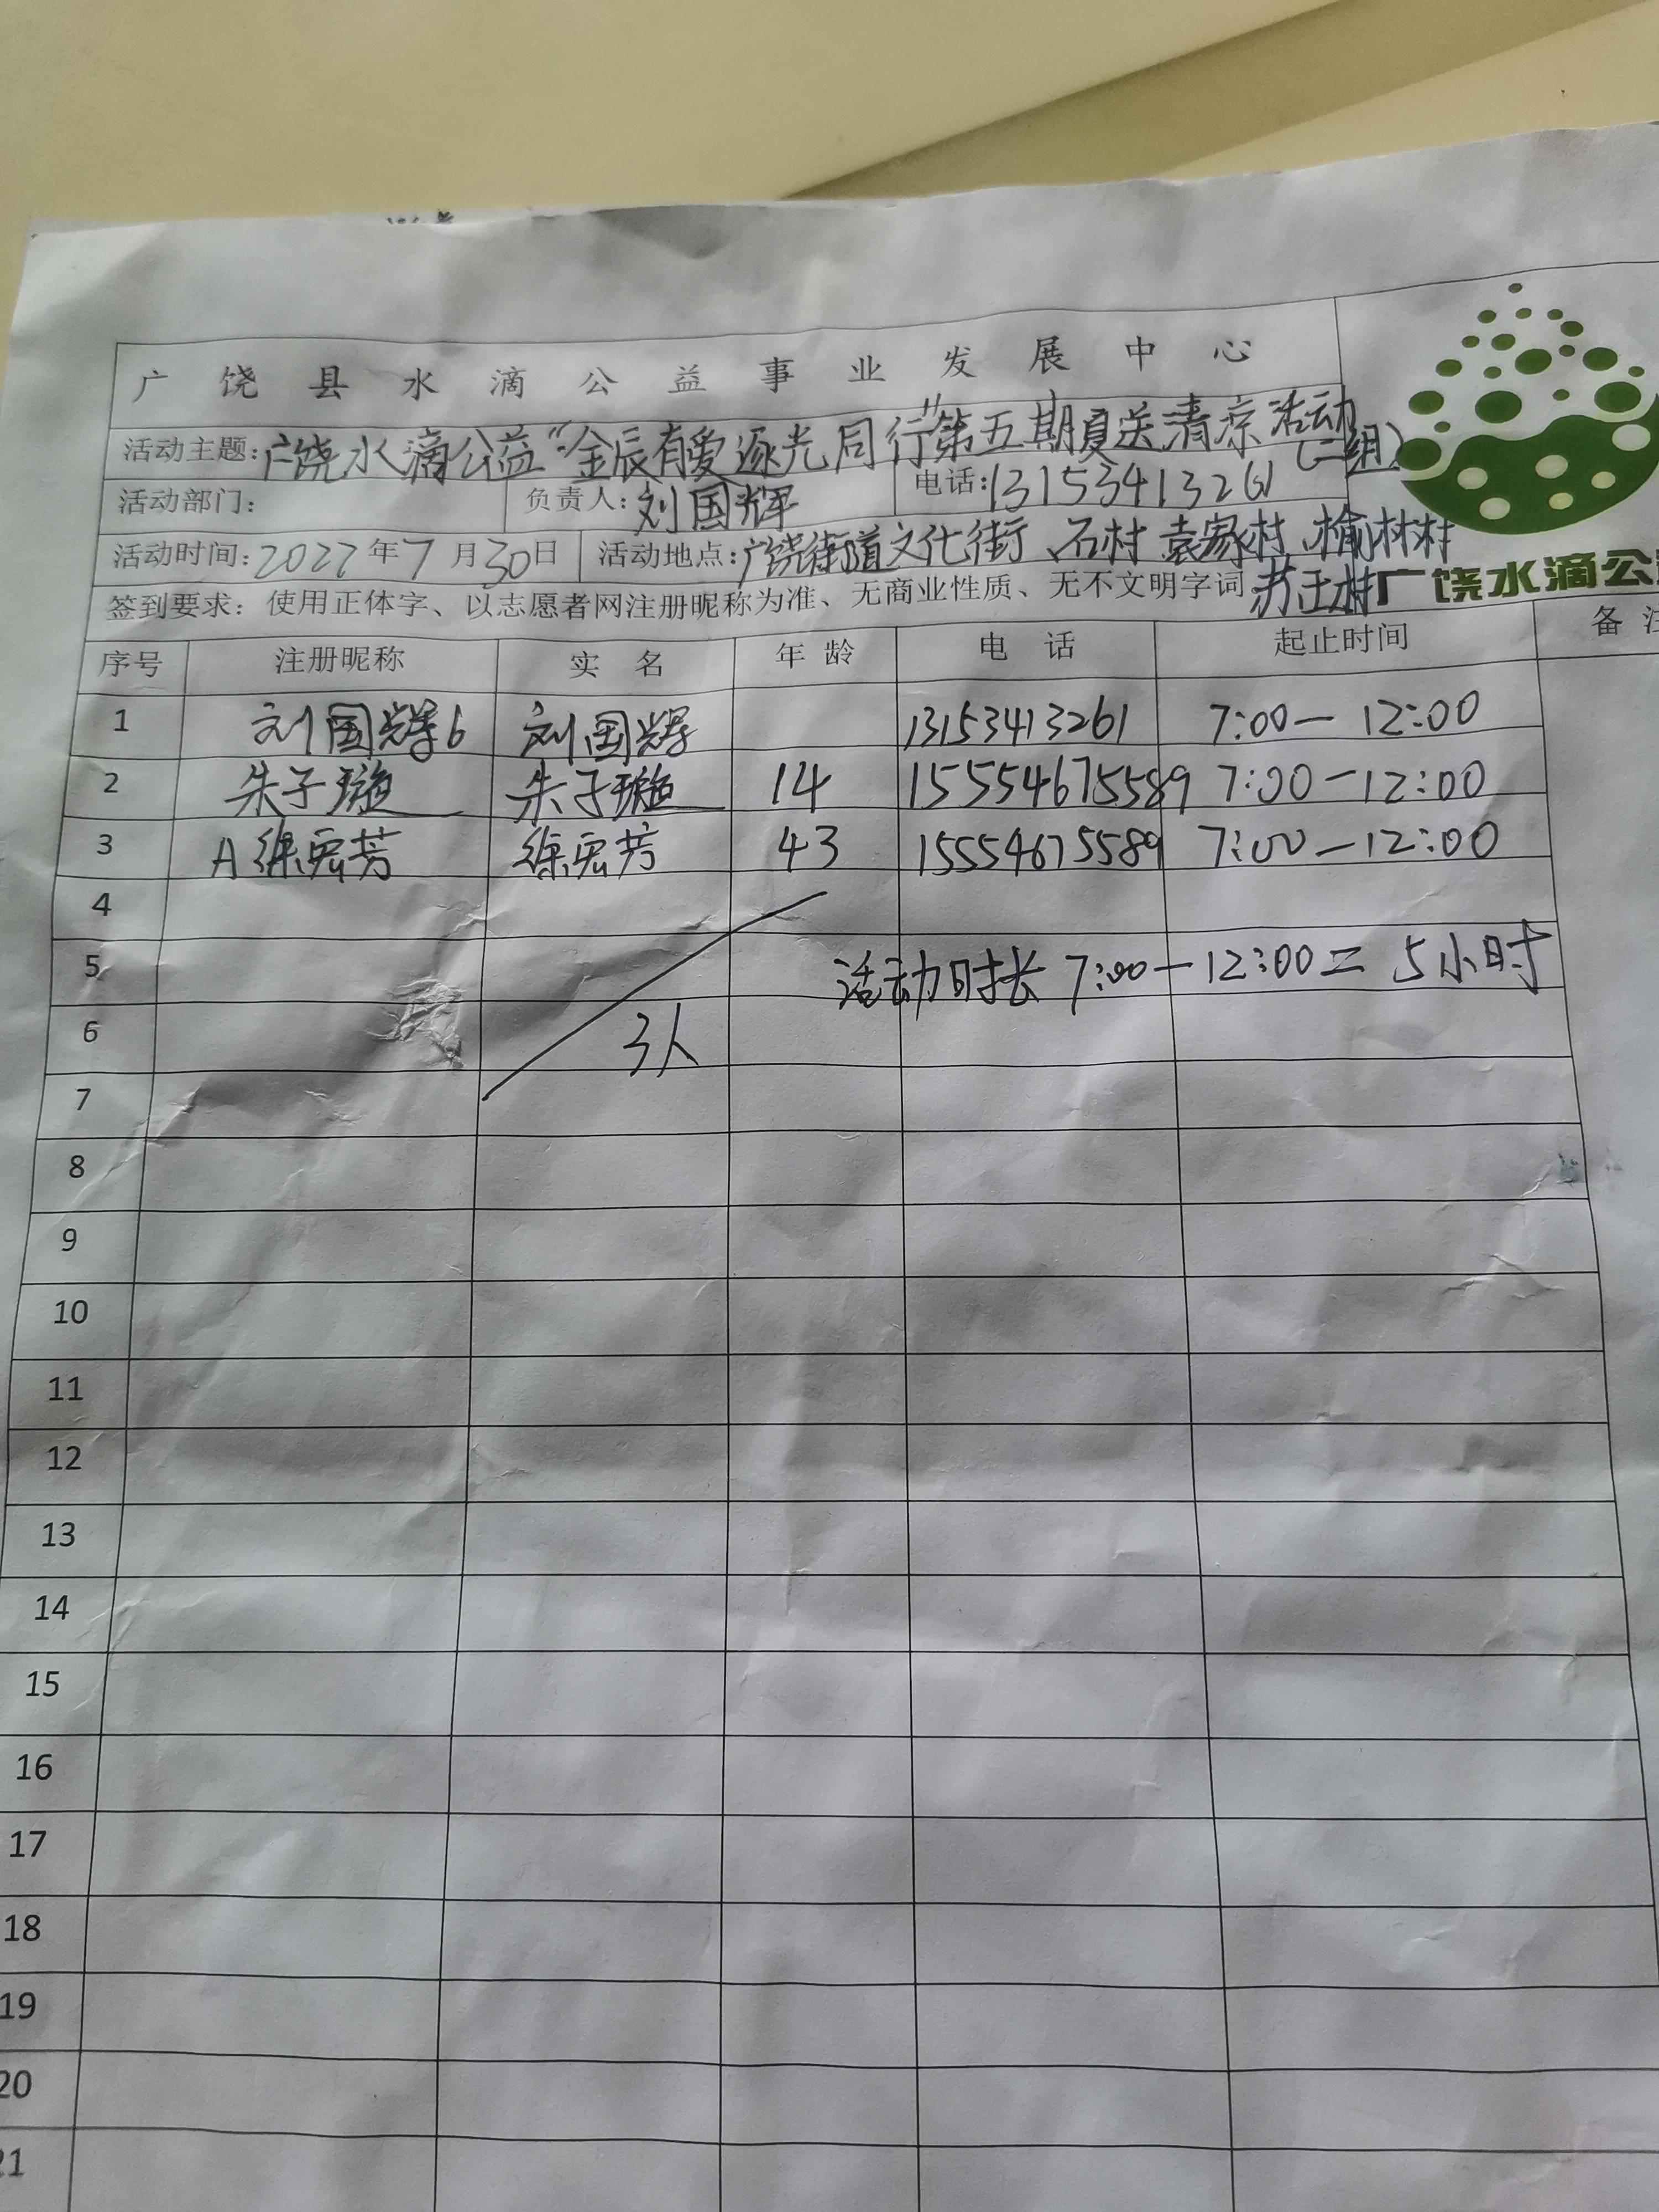 广饶县水滴公益事业发展中心
活动主题:广饶水滴公益“金辰有爱逐光同行”第五期夏送清凉活动(二组)
活动部门: 负责人:刘国辉 电话:13153413261
活动时间:2022年7月30日 活动地点:广饶街道文化街、石村 袁家村、榆林村
苏王村
签到要求:使用正体字、以志愿者网注册昵称为准、无商业性质、无不文明字词
广饶水滴公
序号 注册昵称 实名 年龄 电话 起止时间 备注
1 刘国辉6 刘国辉 13153413261 7:00—12:00
2 朱子璇 朱子璇 14 15554675589 7:00—12:00
3 A徐宪芳 徐宪芳 43 15554675589 7:00—12:00
4
5 活动时长 7:00—12:00=5小时
6 3人
7
8
9
10
11
12
13
14
15
16
17
18
19
20
21